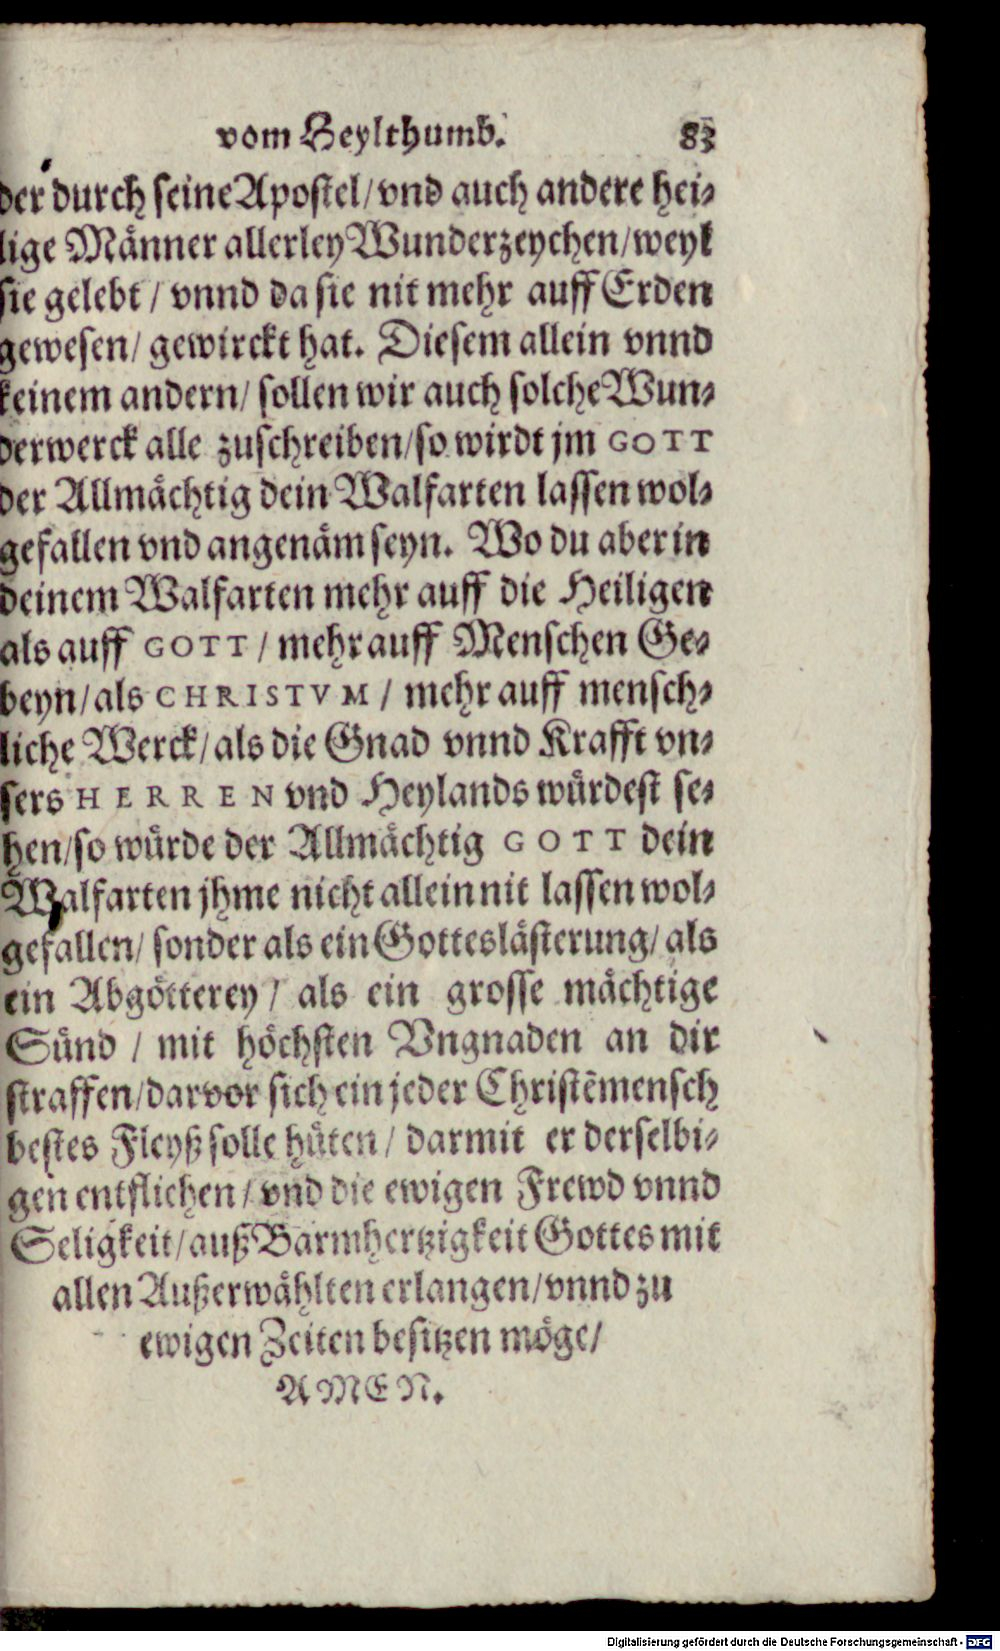 vom Heylthumb. 83
der durch seine Apostel/ vnd auch andere hei-
lige Männer allerley Wunderzeychen/ weyl
sie gelebt / vnnd da sie nit mehr auff Erden
gewesen/ gewirckt hat. Diesem allein vnnd
keinem andern/ sollen wir auch solche Wun-
derwerck alle zuschreiben/ so wirdt jm GOTT
der Allmächtig dein Walfarten lassen wol-
gefallen vnd angenäm seyn. Wo du aber in
deinem Walfarten mehr auff die Heiligen
als auff GOTT / mehr auff Menschen Ge-
beyn/ als CHRISTVM / mehr auff mensch-
liche Werck/ als die Gnad vnnd Krafft vn-
sers HERREN vnd Heylands würdest se-
hen/ so würde der Allmächtig GOTT dein
Walfarten jhme nicht allein nit lassen wol-
gefallen/ sonder als ein Gotteslästerung/ als
ein Abgötterey / als ein grosse mächtige
Sünd / mit höchsten Vngnaden an dir
straffen/ darvor sich ein jeder Christēmensch
bestes Fleyß solle hüten / darmit er derselbi-
gen entfliehen / vnd die ewigen Frewd vnnd
Seligkeit/ auß Barmhertzigkeit Gottes mit
allen Außerwählten erlangen/ vnnd zu
ewigen Zeiten besitzen möge/
AMEN.
Digitalisierung gefördert durch die Deutsche Forschungsgemeinschaft - DFG